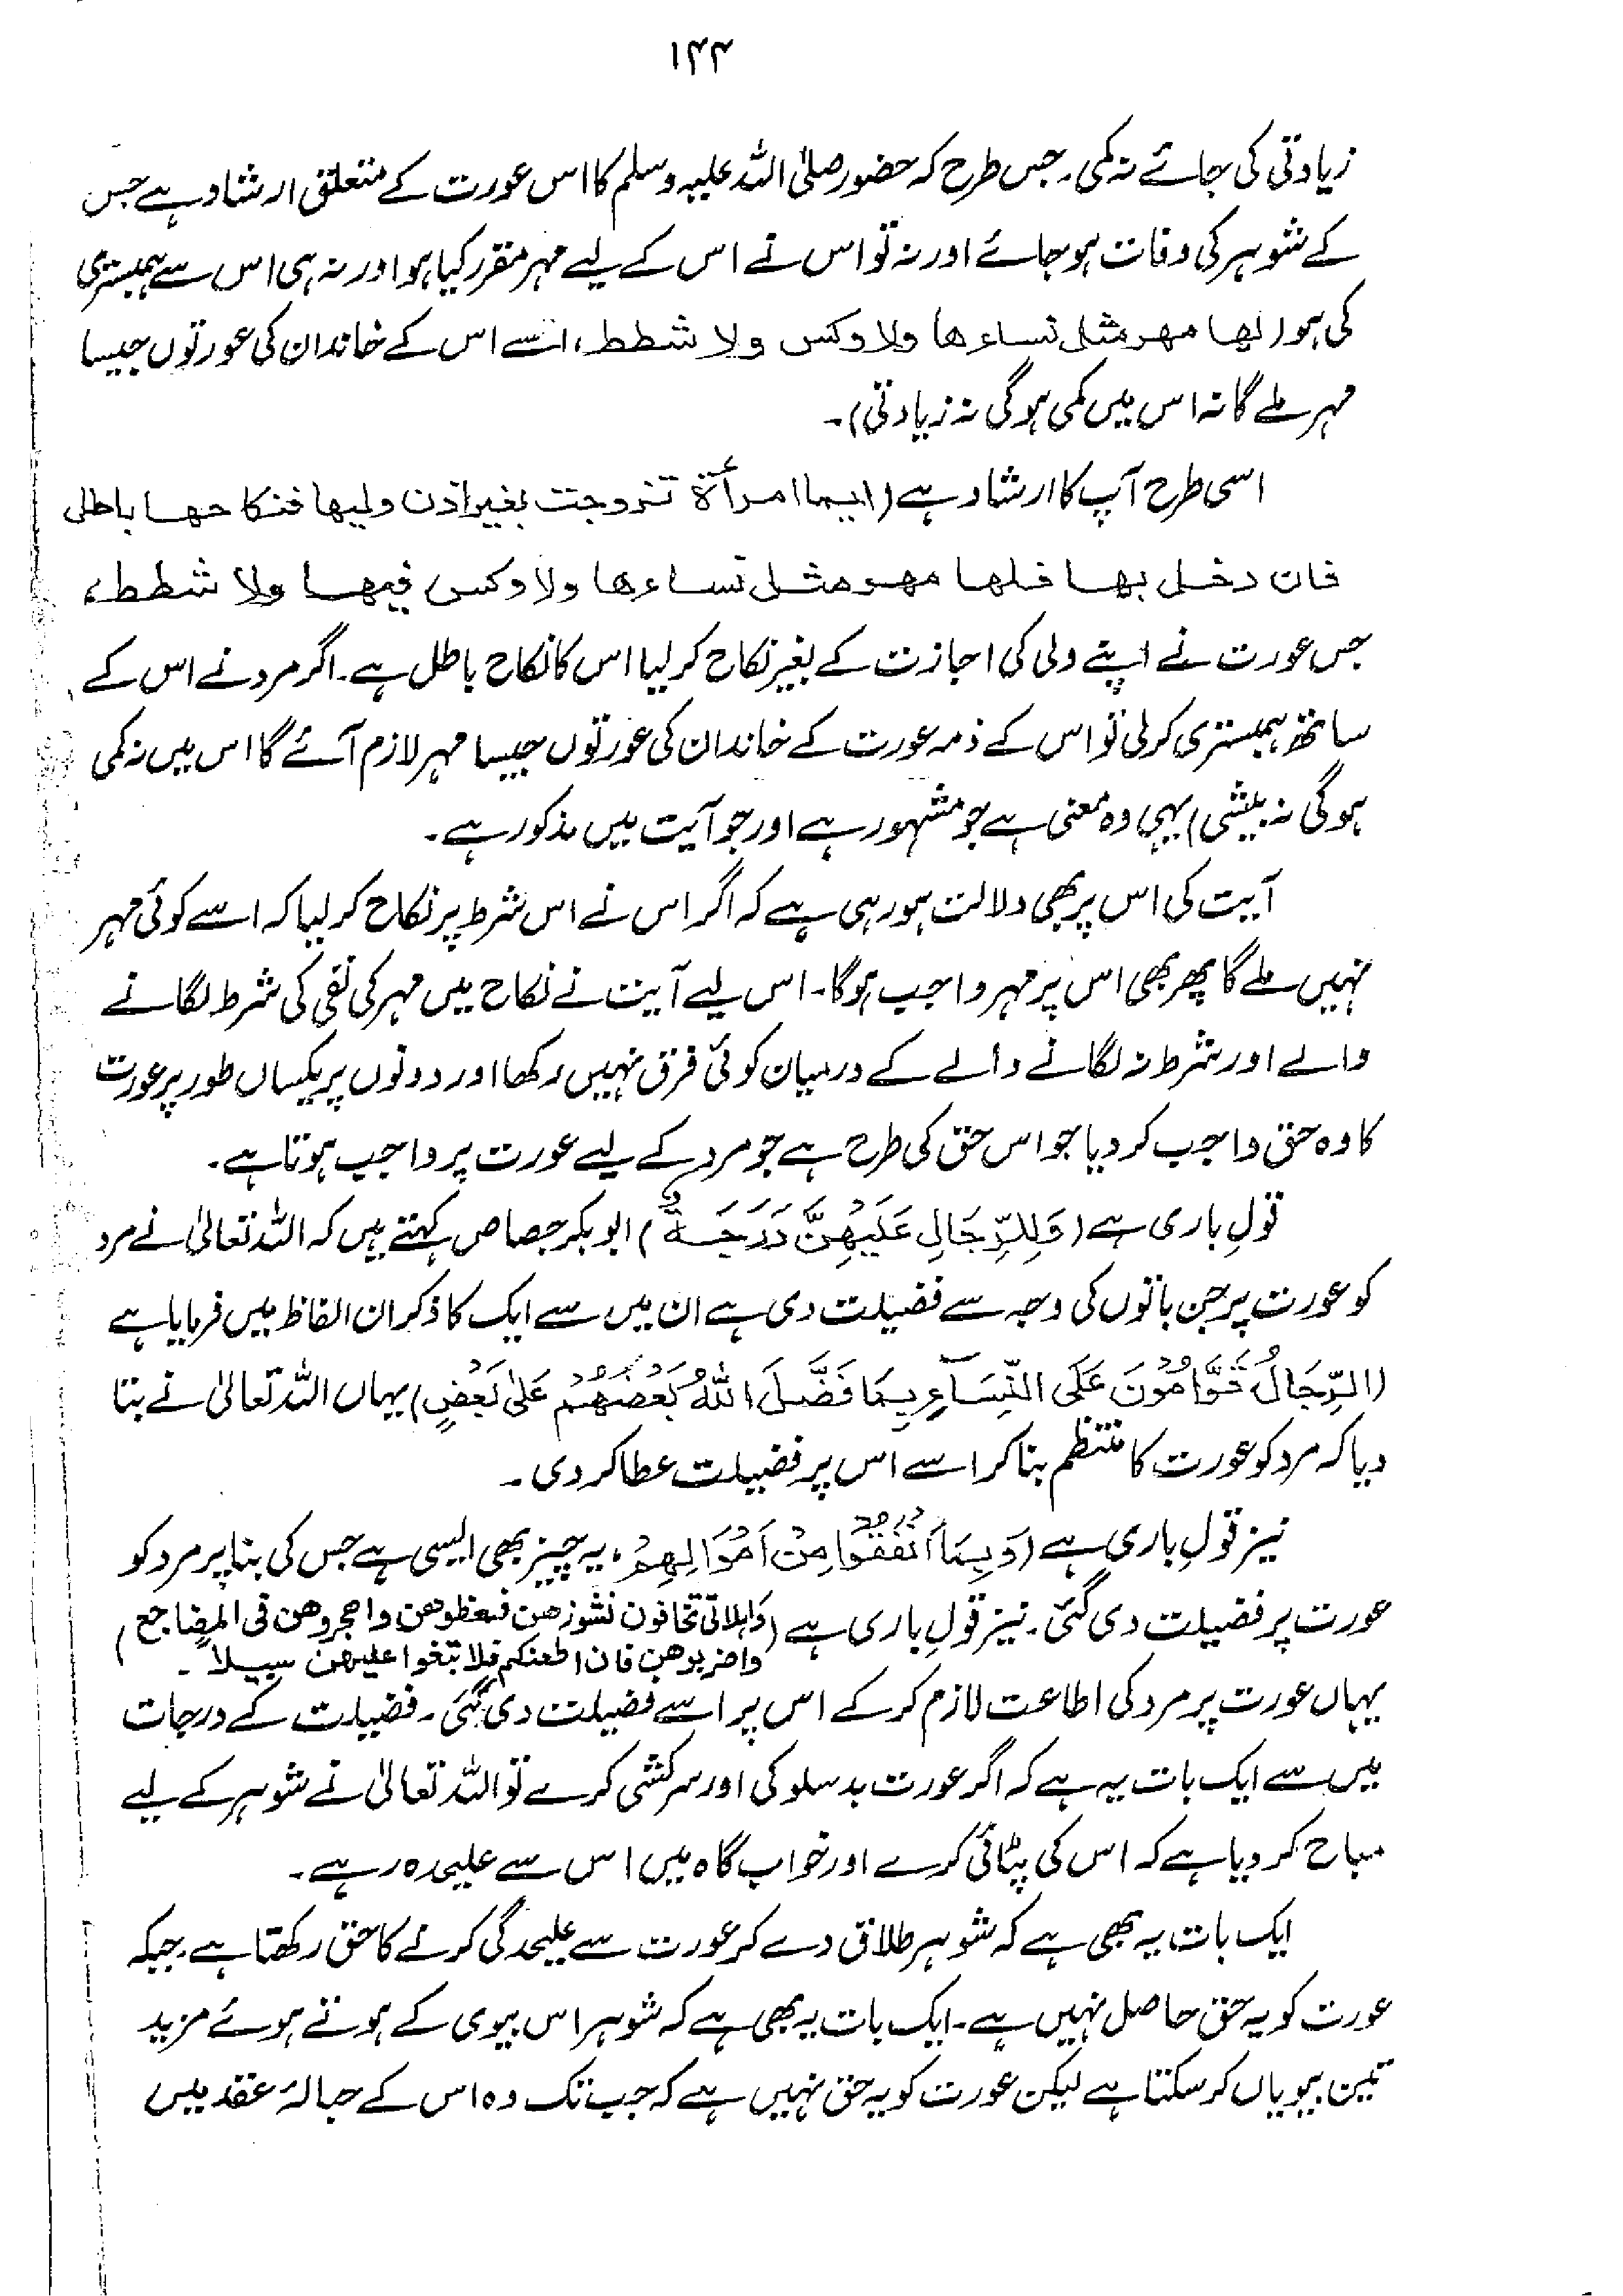 ۱۴۴
زیادتی کی جائے نہ کمی۔ جس طرح کہ حضور صلی اللہ علیہ وسلم کا اس عورت کے متعلق ارشاد ہے جس
کے شوہر کی وفات ہو جائے اور نہ تو اس نے اس کے لیے مہر مقرر کیا ہو اور نہ ہی اس سے ہمبستری
کی ہو (لها مهر مثل نساءها ولا وکس ولا شطط، اسے اس کے خاندان کی عورتوں جیسا
مہر ملے گا نہ اس میں کمی ہوگی نہ زیادتی)۔
اسی طرح آپ کا ارشاد ہے (ایما امرأة تزوجت بغیر اذن ولیها فنکاحها باطل
فان دخل بها فلها مهر مثل نساءها ولا وکس فیها ولا شطط،
جس عورت نے اپنے ولی کی اجازت کے بغیر نکاح کر لیا اس کا نکاح باطل ہے۔ اگر مرد نے اس کے
ساتھ ہمبستری کر لی تو اس کے ذمہ عورت کے خاندان کی عورتوں جیسا مہر لازم آئے گا اس میں نہ کمی
ہوگی نہ بیشی) یہی وہ معنی ہے جو مشہور ہے اور جو آیت میں مذکور ہے۔
آیت کی اس پر بھی دلالت ہو رہی ہے کہ اگر اس نے اس شرط پر نکاح کر لیا کہ اسے کوئی مہر
نہیں ملے گا پھر بھی اس پر مہر واجب ہوگا۔ اس لیے آیت نے نکاح میں مہر کی نفی کی شرط لگانے
والے اور شرط نہ لگانے والے کے درمیان کوئی فرق نہیں رکھا اور دونوں پر یکساں طور پر عورت
کا وہ حق واجب کر دیا جو اس حق کی طرح ہے جو مرد کے لیے عورت پر واجب ہوتا ہے۔
قولِ باری ہے (وَلِلرِّجَالِ عَلَيْهِنَّ دَرَجَةٌ) ابوبکر جصاص کہتے ہیں کہ اللہ تعالیٰ نے مرد
کو عورت پر جن باتوں کی وجہ سے فضیلت دی ہے ان میں سے ایک کا ذکر ان الفاظ میں فرمایا ہے
(الرِّجَالُ قَوَّامُوْنَ عَلَى النِّسَآءِ بِمَا فَضَّلَ اللّٰهُ بَعْضَهُمْ عَلٰى بَعْضٍ) یہاں اللہ تعالیٰ نے بتا
دیا کہ مرد کو عورت کا منتظم بنا کر اسے اس پر فضیلت عطا کر دی۔
نیز قولِ باری ہے (وَبِمَا اَنْفَقُوْا مِنْ اَمْوَالِهِمْ، یہ چیز بھی ایسی ہے جس کی بنا پر مرد کو
عورت پر فضیلت دی گئی۔ نیز قولِ باری ہے (وَاللاتی تخافون نشوزهن فعظوهن واهجروهن فی المضاجع
واضربوهن فان اطعنکم فلا تبغوا علیهن سبیلاً)۔
یہاں عورت پر مرد کی اطاعت لازم کر کے اس پر اسے فضیلت دی گئی۔ فضیلت کے درجات
میں سے ایک بات یہ ہے کہ اگر عورت بدسلوکی اور سرکشی کرے تو اللہ تعالیٰ نے شوہر کے لیے
مباح کر دیا ہے کہ اس کی پٹائی کرے اور خواب گاہ میں اس سے علیحدہ رہے۔
ایک بات یہ بھی ہے کہ شوہر طلاق دے کر عورت سے علیحدگی کرنے کا حق رکھتا ہے۔ جبکہ
عورت کو یہ حق حاصل نہیں ہے۔ ایک بات یہ بھی ہے کہ شوہر اس بیوی کے ہوتے ہوئے مزید
تین بیویاں کر سکتا ہے لیکن عورت کو یہ حق نہیں ہے کہ جب تک وہ اس کے حبالۂ عقد میں